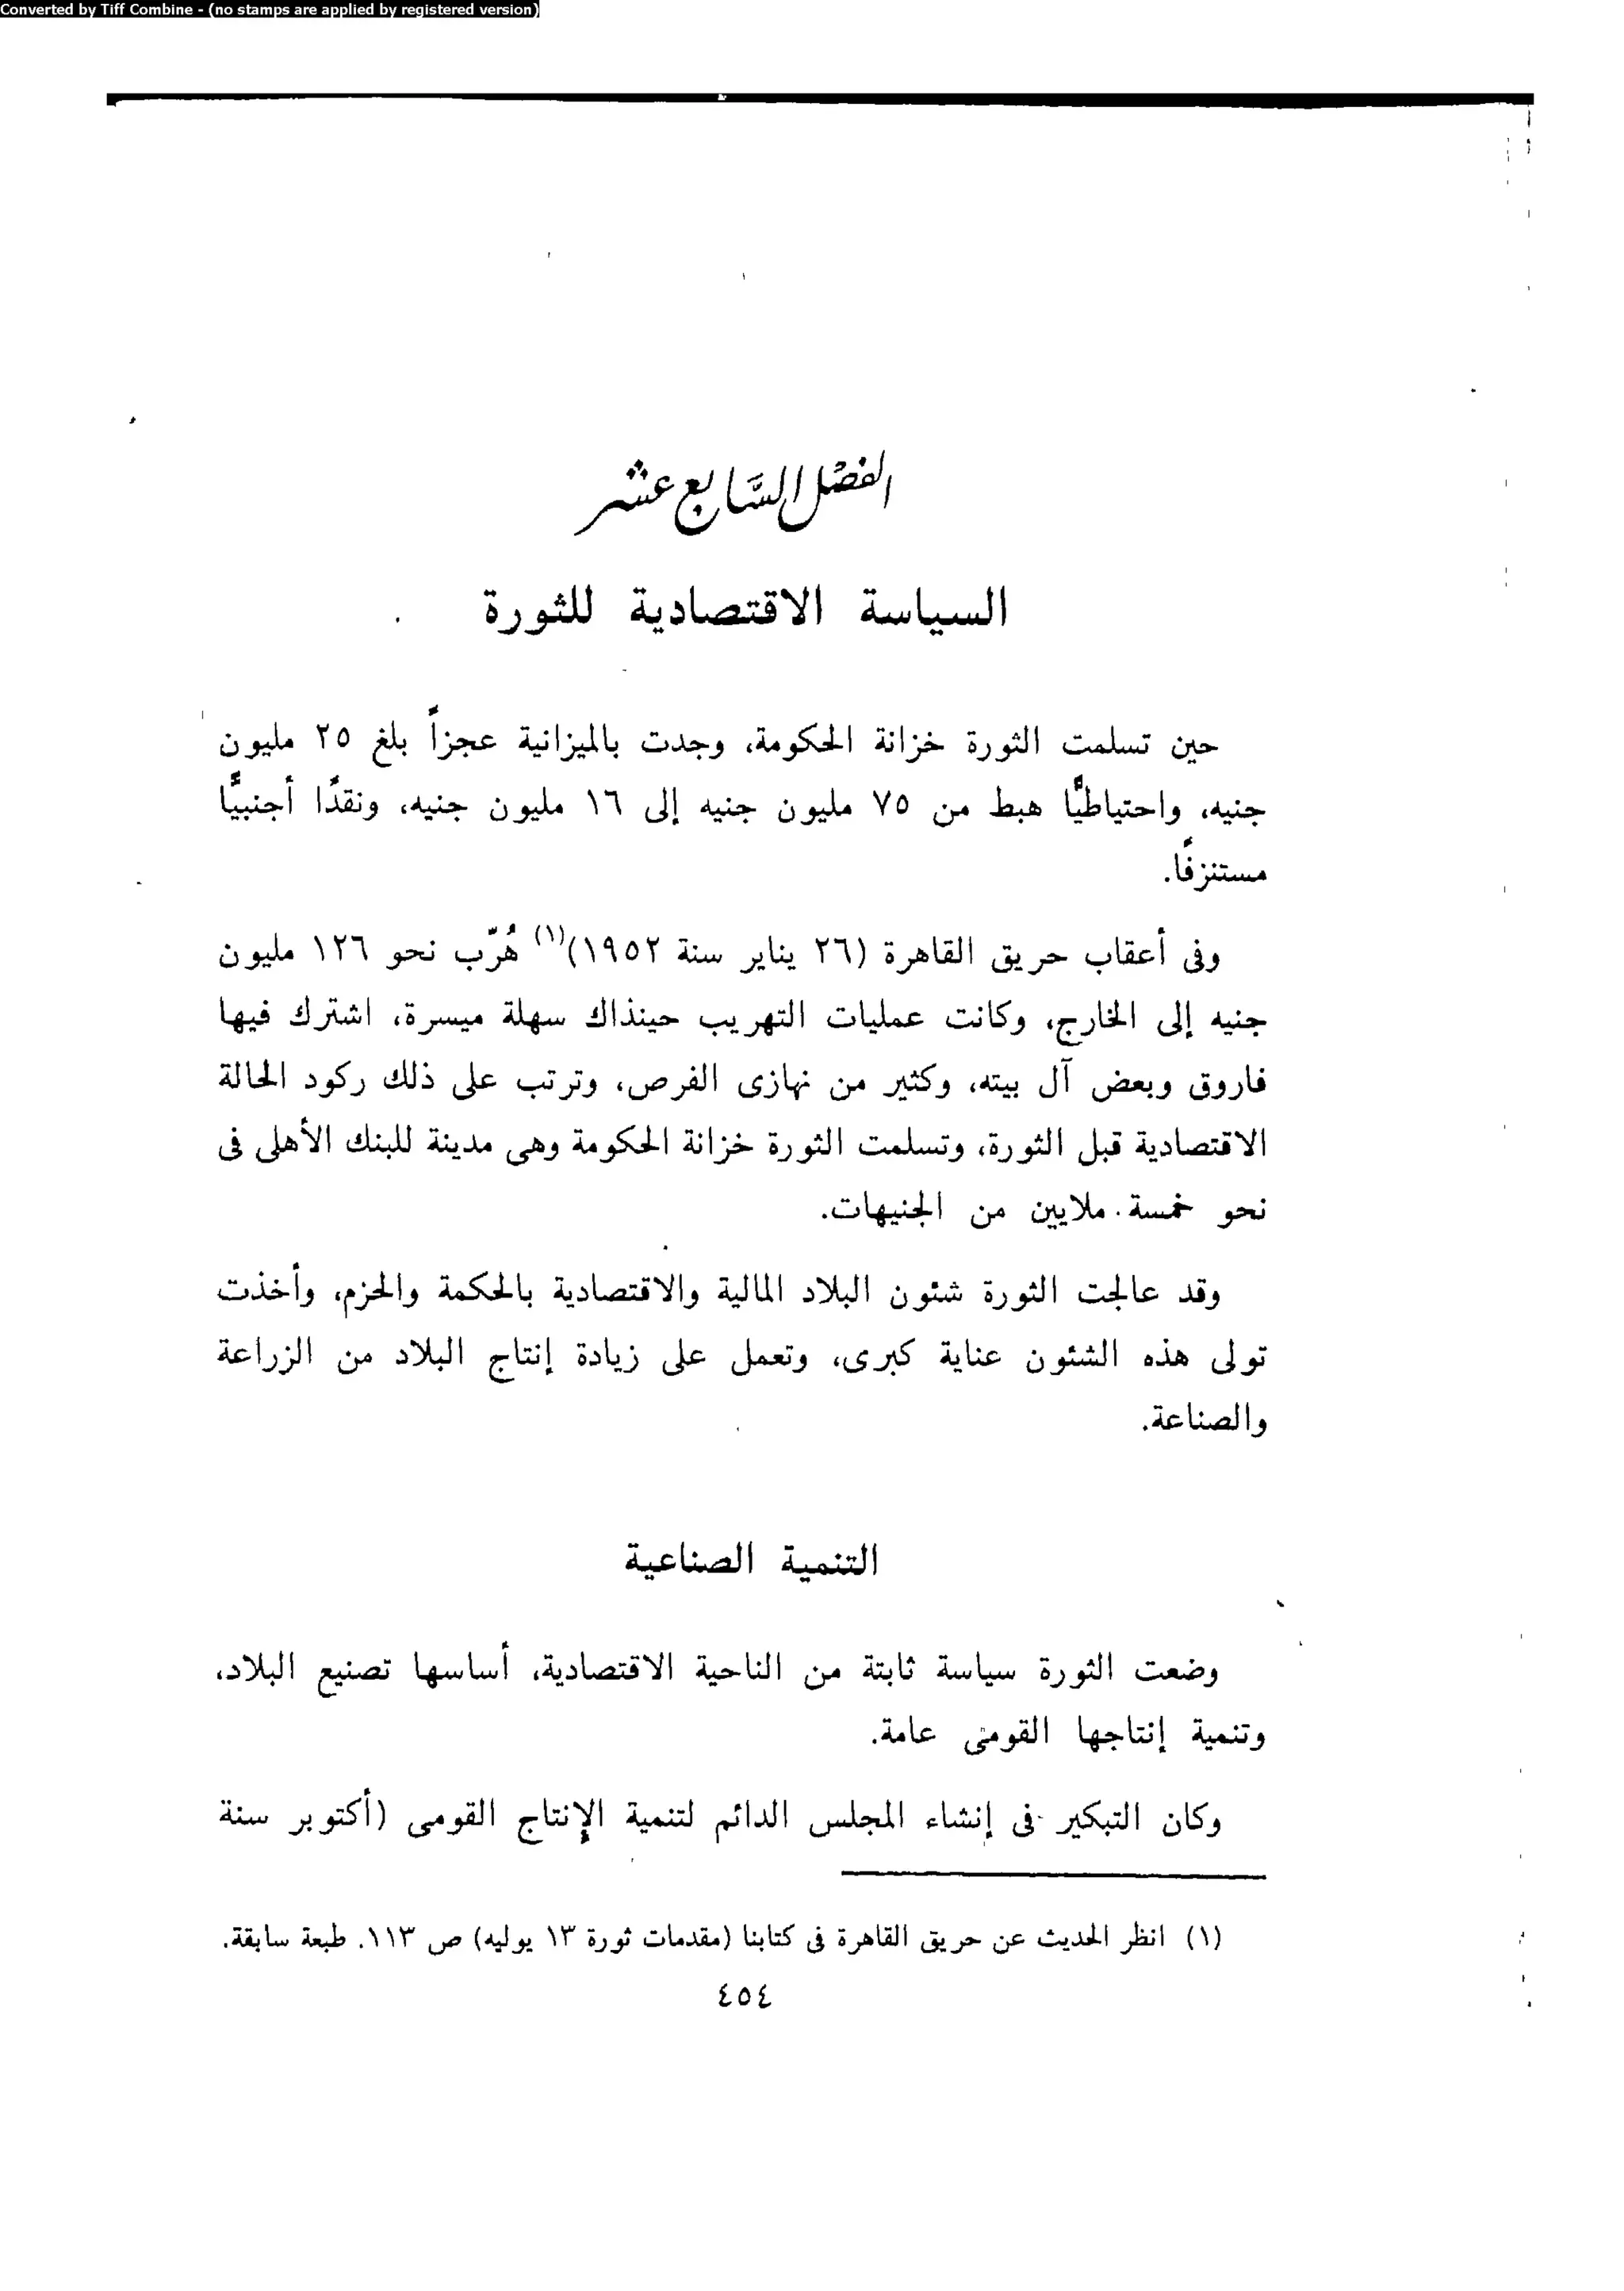 Converted by Tiff Combine - (no stamps are applied by registered version)
الفصل السابع عشر
السياسة الاقتصادية للثورة
حين تسلمت الثورة خزانة الحكومة، وجدت بالميزانية عجزاً بلغ ٢٥ مليون
جنيه، واحتياطيًّا هبط من ٧٥ مليون جنيه إلى ١٦ مليون جنيه، ونقدًا أجنبيًّا
مستنزفًا.
وفى أعقاب حريق القاهرة (٢٦ يناير سنة ١٩٥٢)(١) هُرّب نحو ١٢٦ مليون
جنيه إلى الخارج، وكانت عمليات التهريب حينذاك سهلة ميسرة، اشترك فيها
فاروق وبعض آل بيته، وكثير من نهازى الفرص، وترتب على ذلك ركود الحالة
الاقتصادية قبل الثورة، وتسلمت الثورة خزانة الحكومة وهى مدينة للبنك الأهلى فى
نحو خمسة ملايين من الجنيهات.
وقد عالجت الثورة شئون البلاد المالية والاقتصادية بالحكمة والحزم، وأخذت
تولى هذه الشئون عناية كبرى، وتعمل على زيادة إنتاج البلاد من الزراعة
والصناعة.
التنمية الصناعية
وضعت الثورة سياسة ثابتة من الناحية الاقتصادية، أساسها تصنيع البلاد،
وتنمية إنتاجها القومى عامة.
وكان التبكير فى إنشاء المجلس الدائم لتنمية الإنتاج القومى (أكتوبر سنة
(١) انظر الحديث عن حريق القاهرة فى كتابنا (مقدمات ثورة ١٣ يوليه) ص ١١٣. طبعة سابقة.
٤٥٤